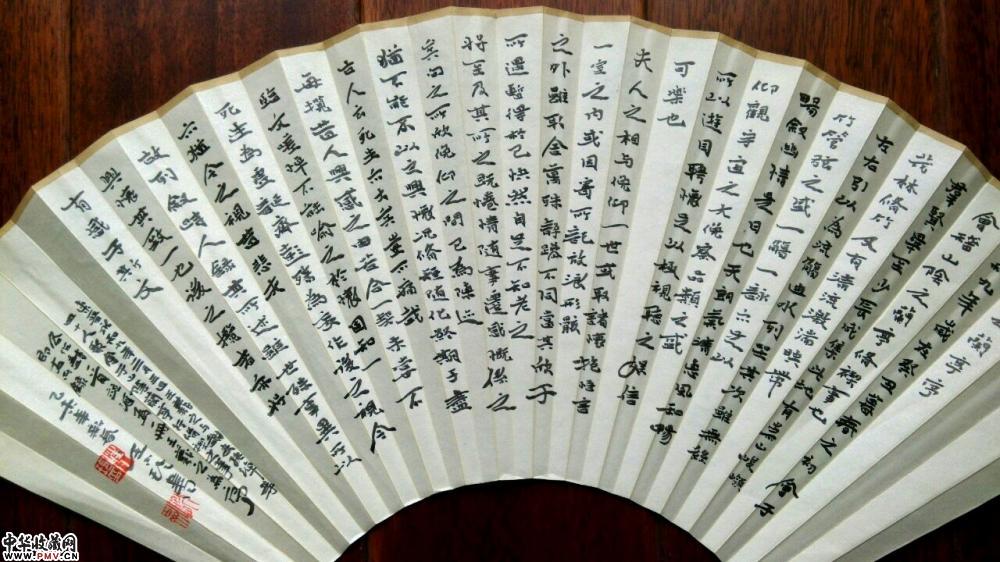 蘭亭序
九年歲在癸丑暮春之初會于
會稽山陰之蘭亭脩禊事也
羣賢畢至少長咸集此地有崇山峻嶺
茂林脩竹又有清流激湍映帶
左右引以為流觴曲水列坐其次雖無絲
竹管弦之盛一觴一詠亦足以
暢敘幽情是日也天朗氣清惠風和暢
仰觀宇宙之大俯察品類之盛
所以遊目騁懷足以極視聽之娛信
可樂也
夫人之相與俛仰一世或取諸懷抱悟言
一室之内或因寄所託放浪形骸
之外雖取舍萬殊靜躁不同當其欣于
所遇暫得於己快然自足不知老之
將至及其所之既惓情隨事遷感慨係之
矣向之所欣俛仰之間已為陳迹
猶不能不以之興懷況脩短隨化終期于盡
古人云死生亦大矣豈不痛哉
每攬昔人興感之由若合一契未嘗不
臨文嗟悼不能喻之於懷固知一
死生為虛誕齊彭殤為妄作後之視今
亦猶今之視昔悲夫
故列敘時人錄其所述雖世殊事異所以
興懷其致一也後之攬者亦將
有感于斯文
中华收藏网
www.PMV.CN